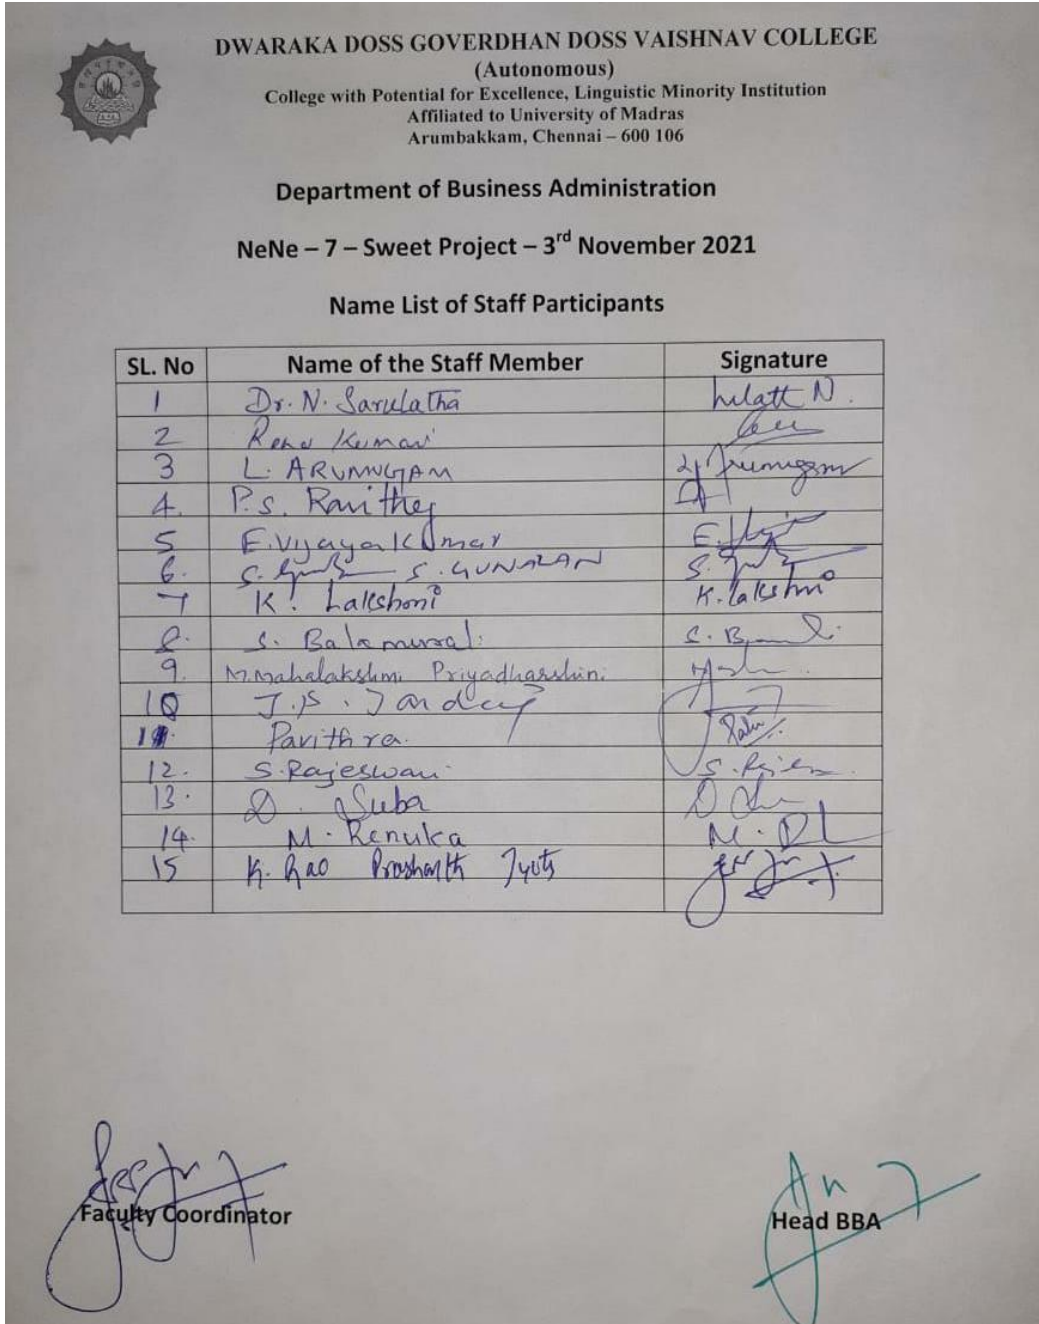 DWARAKA DOSS GOVERDHAN DOSS VAISHNAV COLLEGE
(Autonomous)
College with Potential for Excellence, Linguistic Minority Institution
Affiliated to University of Madras
Arumbakkam, Chennai – 600 106
Department of Business Administration
NeNe – 7 – Sweet Project – 3rd November 2021
Name List of Staff Participants
SL. No Name of the Staff Member Signature
1 Dr. N. Sarulatha
2 Renu Kumari
3 L. ARUMUGAM
4. P.S. Ravithej
5 E. Vijayakumar
6. S. GUNALAN
7 K. Lakshmi K. Lakshmi
8. S. Balamurali
9. M. Mahalakshmi Priyadharshini
10
11. Pavithra.
12. S. Rajeswari
13. D. Suba
14. M. Renuka
15 K. Rao Prashanth Jyoti
Faculty Coordinator
Head BBA